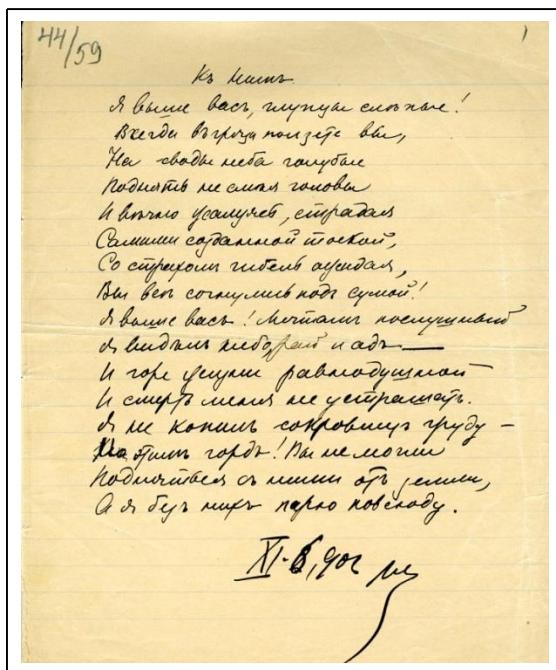 44/59
1
Къ нимъ
Я выше васъ, глупцы слѣпые!
Всегда въ грязи ползете вы,
На своды неба голубые
Поднять не смѣя головы
И вѣчно страдая
Самими созданной тоской,
Со страхомъ гибель ожидая,
Вы всѣ согнулись подъ сумой!
Я выше васъ! Мечтамъ послушный
Я видѣлъ рай и адъ —
И горе равнодушной
И смерть меня не устрашатъ.
Я не копилъ сокровищъ груду –
этимъ гордъ! Вы не могли
Подняться съ ними отъ земли,
А я безъ нихъ парю повсюду.
XI